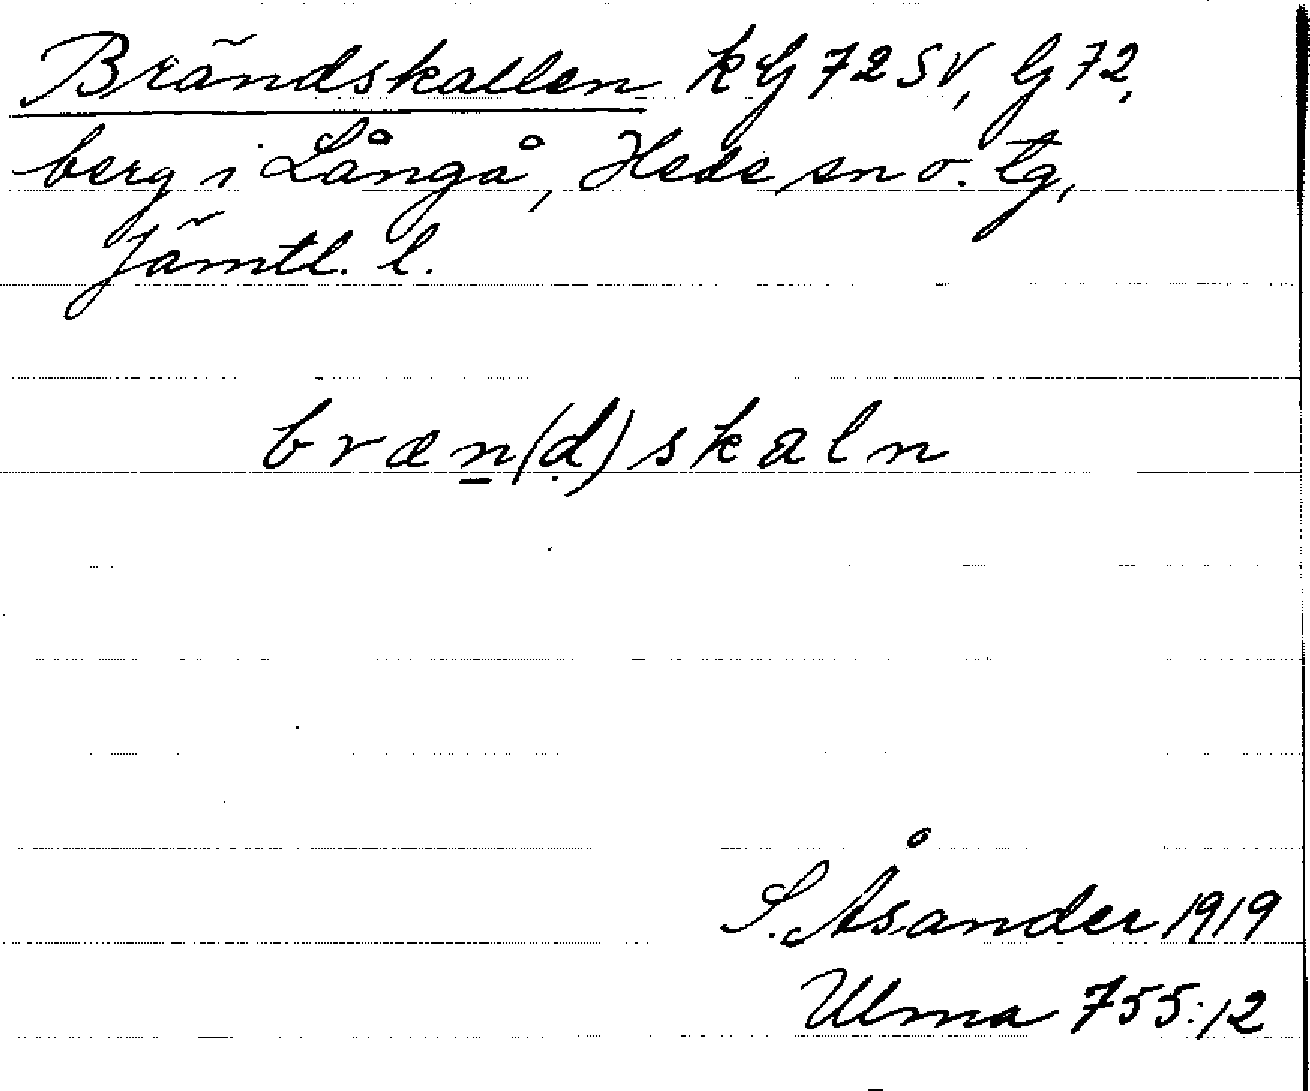 Brändskallen kG 72 SV, G 72,
berg i Långå, Hede sn o. tg,
Jämtl. l.
bræn(d)skaln
S. Åsander 1919
Ulma 755:12